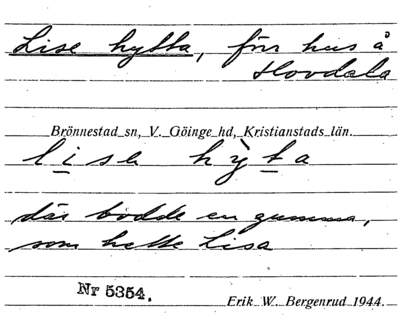 Lise hytta, förr hus å
Hovdala
Brönnestad sn, V. Göinge hd, Kristianstads län.
lise hỳta
där bodde en gumma,
som hette Lisa
Nr 5354.
Erik W. Bergenrud 1944.